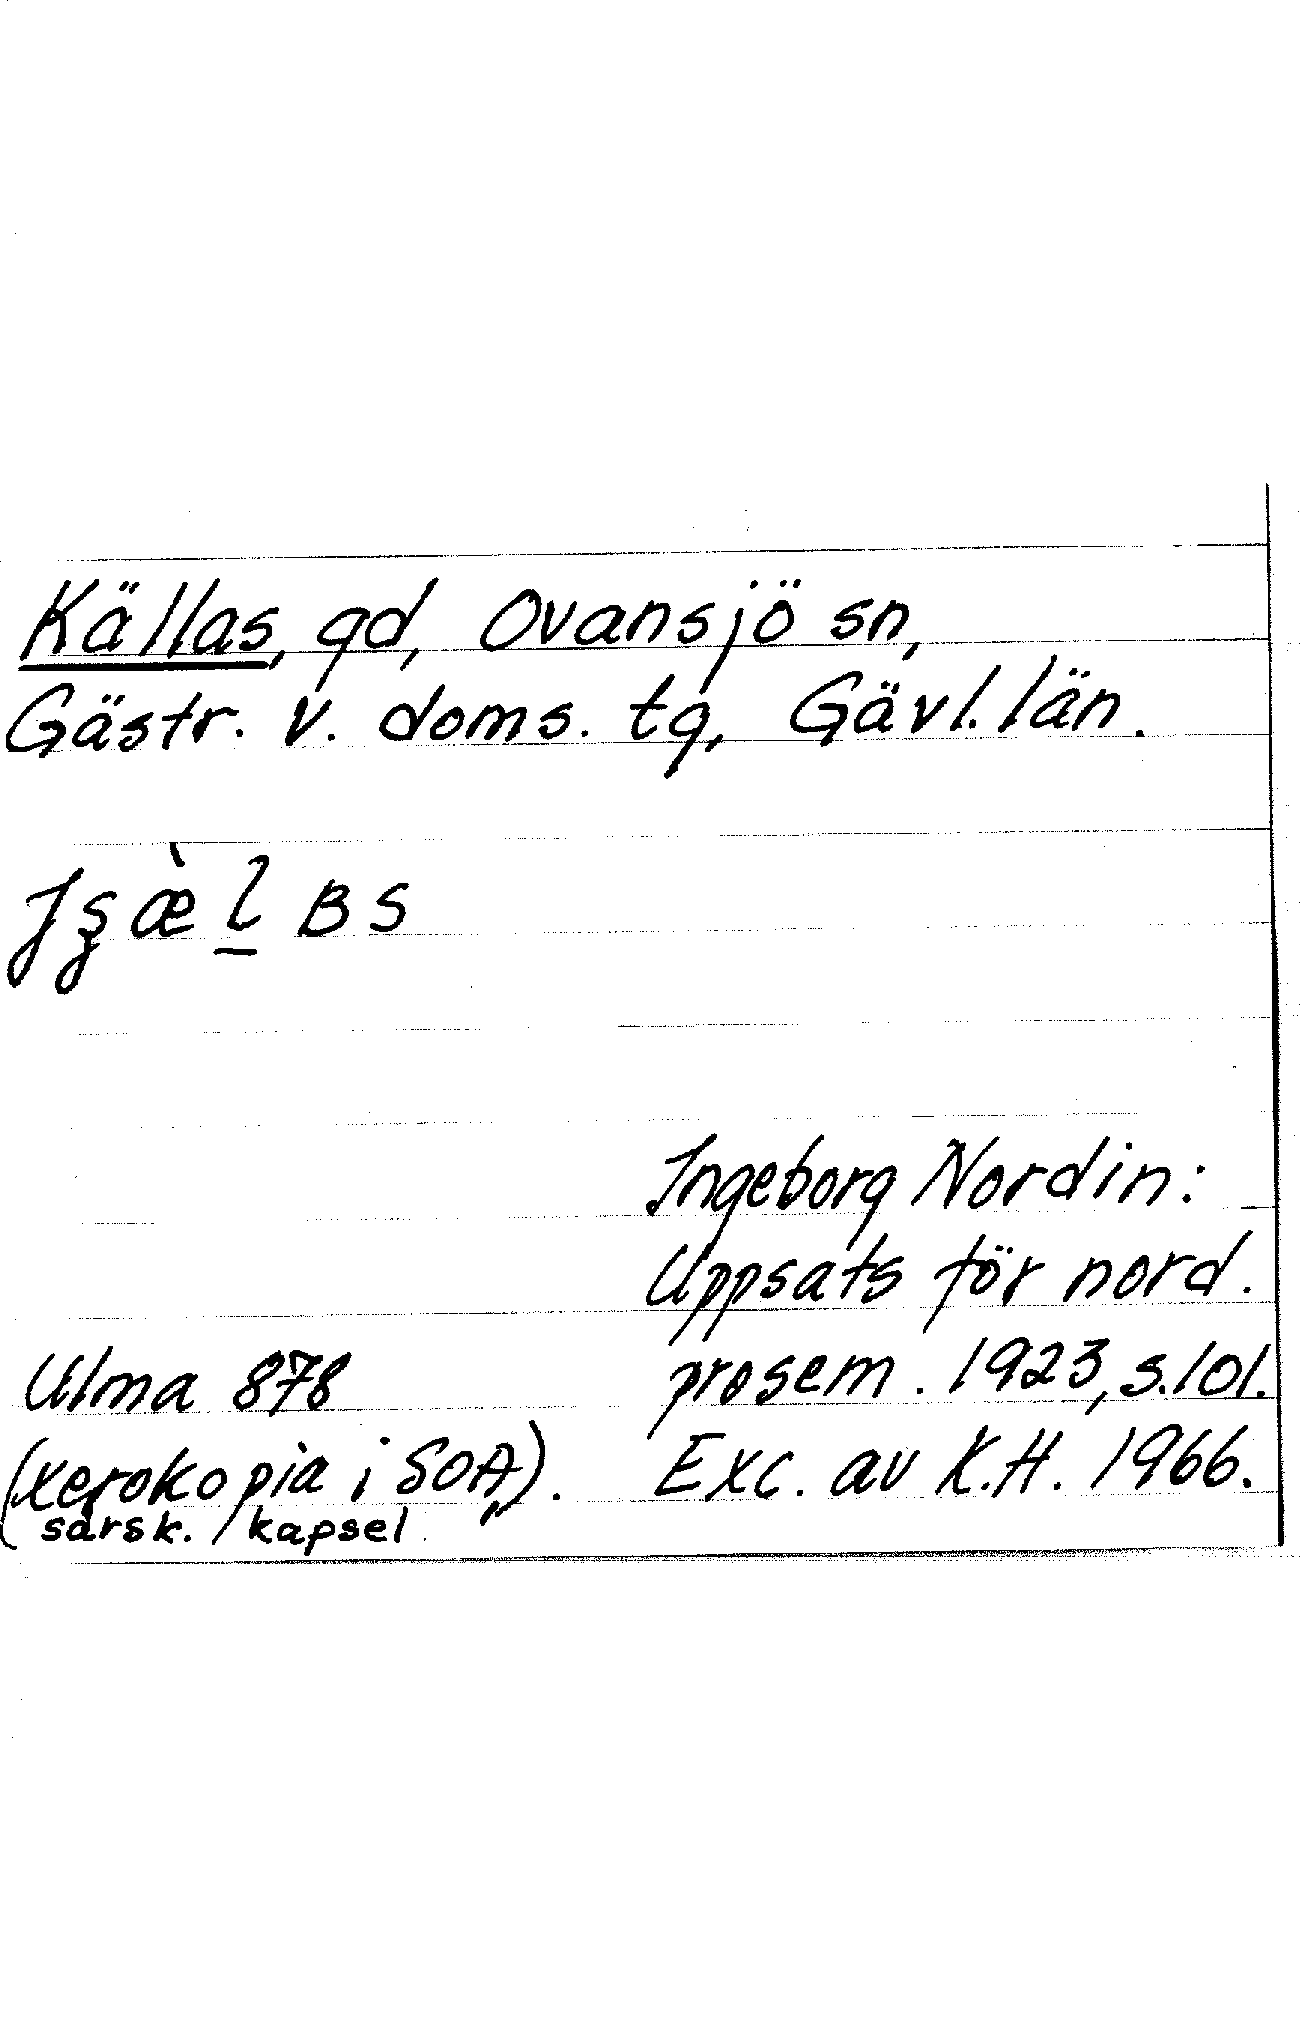 Källas, gd, Ovansjö sn,
Gästr. v. doms. tg, Gävl. län.
Ingeborg Nordin:
Uppsats för nord.
prosem. 1923, s. 101.
Exc. av K.H. 1966.
Ulma 878
(xerokopia i SOA).
särsk. kapsel